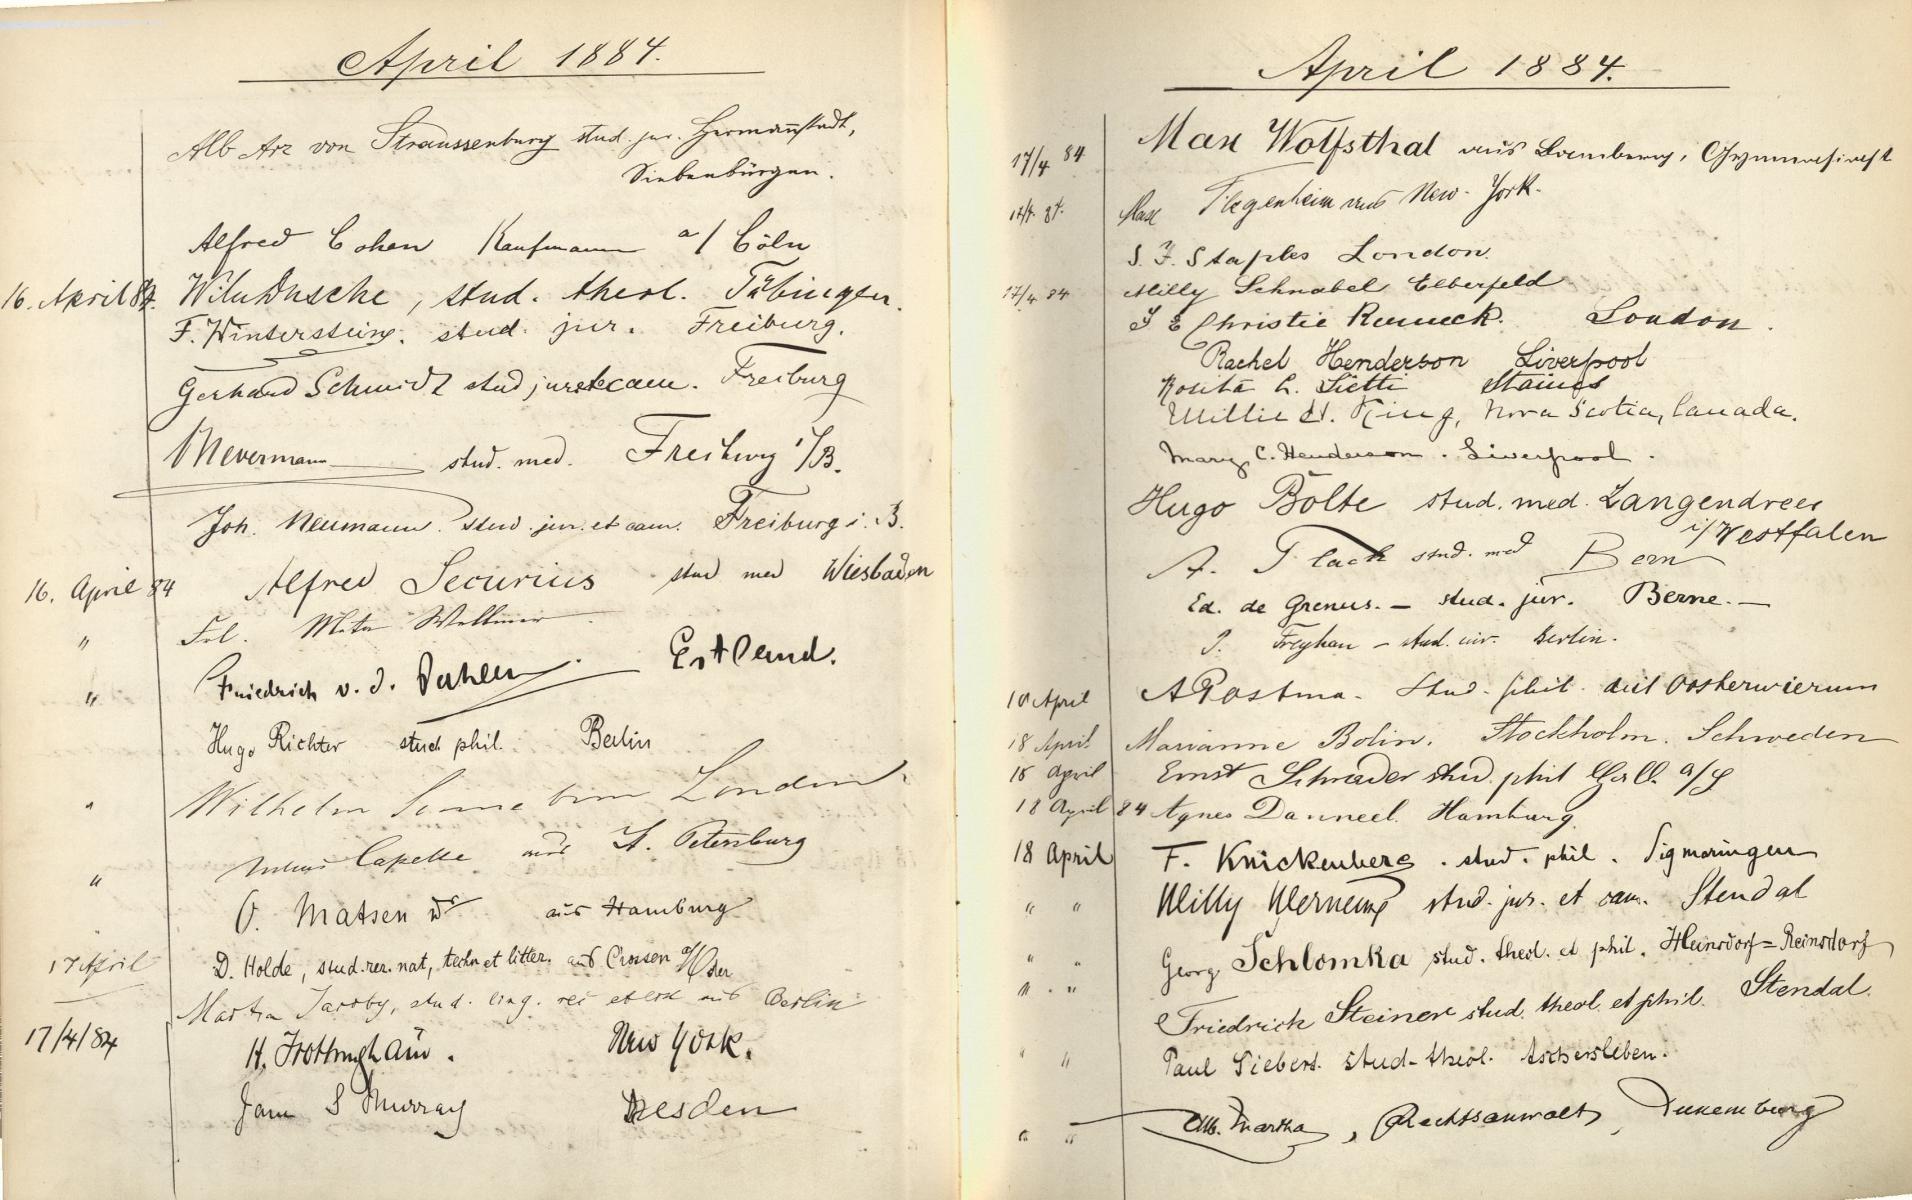 April 1884.
Alb Arz von Straussenburg stud. jur. Hermannstadt,
Siebenbürgen.
Alfred Cohen Kaufmann a/ Cöln
16. April 84. , stud. theol. Tübingen.
F. Winterstein. stud. jur. Freiburg.
Gerhard Schmidt stud jur et cam. Freiburg
Mevermann stud. med. Freiburg i/B.
Joh. Neumann. stud. jur. et cam. Freiburg i. B.
16. April 84 Alfred Securius stud med Wiesbaden
" Frl.
" Friedrich v. d. Pahlen. Estland.
Hugo Richter stud phil. Berlin
" Wilhelm London
" Capelle aus St. Petersburg
" O. Matsen Dr aus Hamburg
17 April D. Holde, stud. rer. nat, techn et litter. aus Crossen a/Oder
Martha Jacoby, stud. ling. aus Berlin
17/4/84 H. Frothingham. New York.
S Murray Dresden
April 1884.
17/4 84 Max Wolfsthal aus Lemberg, Gymnasiast
17/4. 84. Max Flegenheim aus New-York.
S. F. Staples London.
17/4 84 Milly Schnabel Elberfeld
Christie London.
Rachel Henderson Liverpool
Rosita Staines
Willie H. King, Nova Scotia, Canada.
Mary C. Henderson. Liverpool.
Hugo Bolte stud. med. Langendreer
i/Westfalen
A. Flach stud. med Bern
Ed. de Grenus. — stud. jur. Berne. —
J. Freyhan – stud. jur. Berlin.
18 April A Postma. Stud. phil. uit Oosterwierum
18 April Marianne Bolin. Stockholm. Schweden
18 April Ernst Schrader stud. phil Halle a/S
18 April 84 Agnes Danneel. Hamburg.
18 April F. Knickenberg. stud. phil. Sigmaringen
" " Willy Werneke stud. jur. et cam. Stendal
" " Georg Schlomka stud. theol. et phil. Heinsdorf=Reinsdorf
" " Friedrich Steiner stud. theol et phil. Stendal.
" " Paul Siebert. stud-theol. Aschersleben.
" " Alb. Martha, Rechtsanwalt,